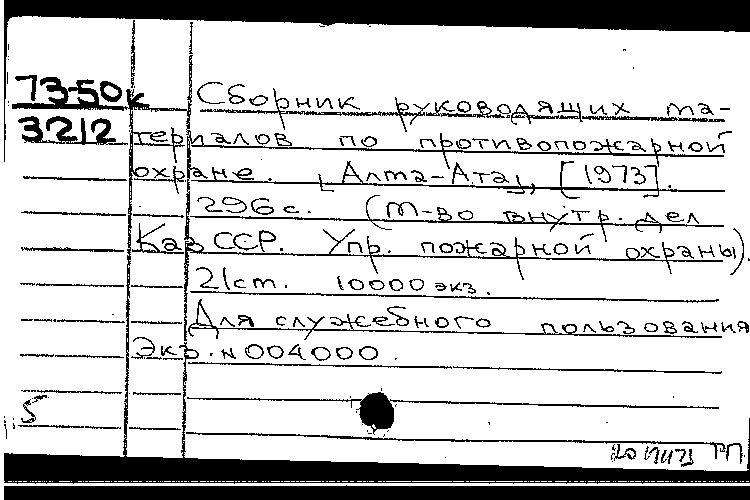 73-50к
3212
Сборник руководящих ма-
териалов по противопожарной
охране. [Алма-Ата], [1973].
296 с. (М-во внутр. дел
Каз ССР. Упр. пожарной охраны).
21 cm. 10000 экз.
Для служебного пользования
Экз. N 004000.
5